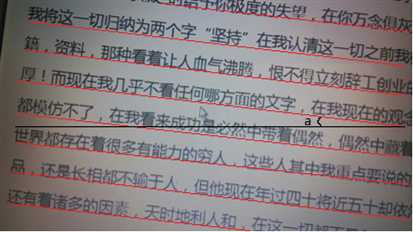 给于你极度的失望，在你万念俱灰
我将这一切归纳为两个字“坚持”在我认清这一切之前我
籍，资料，那种看着让人血气沸腾，恨不得立刻辞工创业的
厚！而现在我几乎不看任何哪方面的文字，在我现在的观念
都模仿不了，在我看来成功是必然中带着偶然，偶然中藏着
世界都存在着很多有能力的穷人，这些人其中我重点要说的
品，还是长相都不输于人，但他现在年过四十将近五十却依
还有着诸多的因素，天时地利人和，在这一切